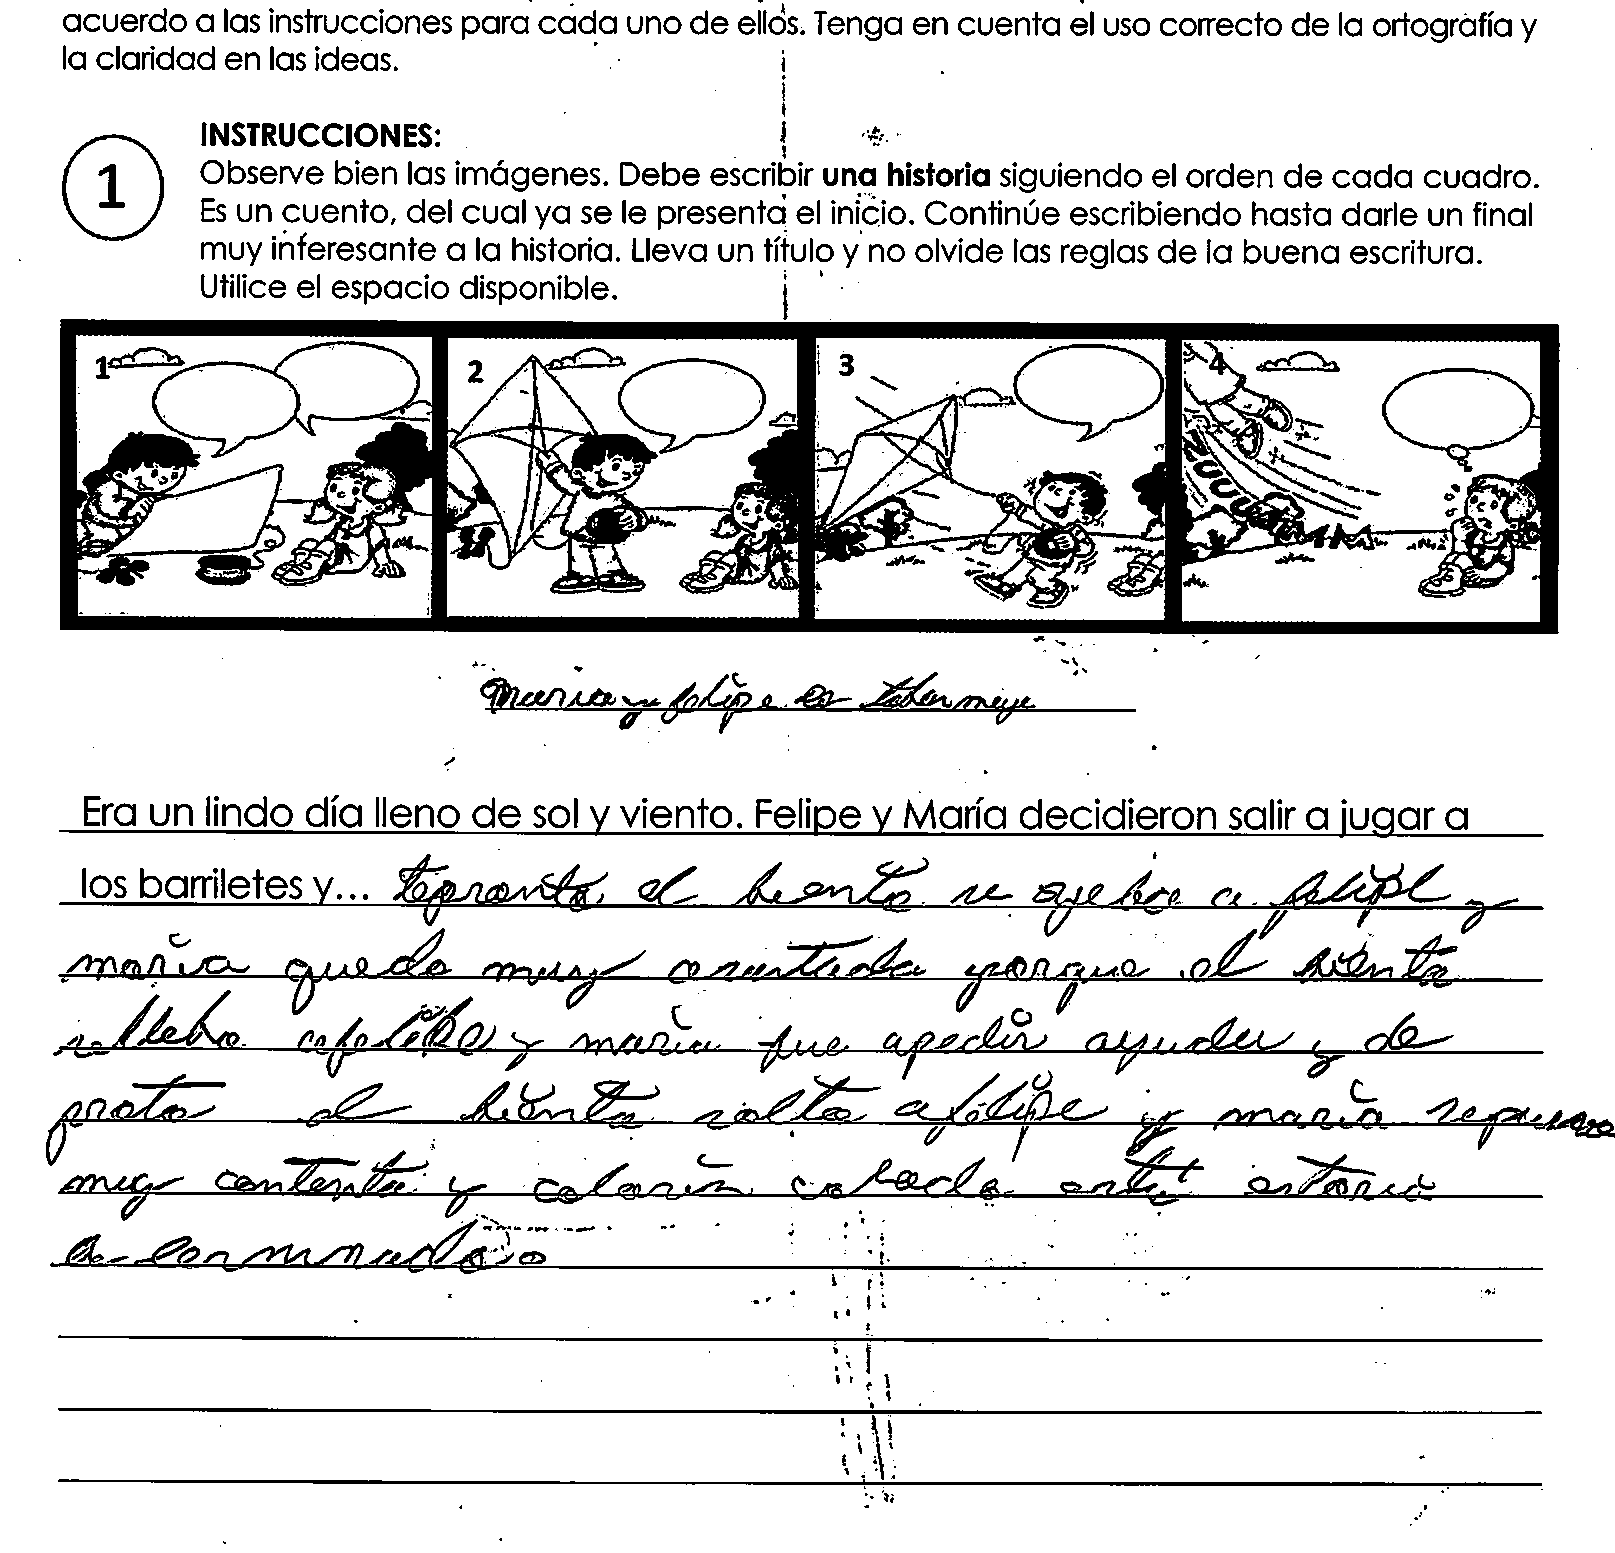 acuerdo a las instrucciones para cada uno de ellos. Tenga en cuenta el uso correcto de la ortografía y
la claridad en las ideas.
1
INSTRUCCIONES:
Observe bien las imágenes. Debe escribir una historia siguiendo el orden de cada cuadro.
Es un cuento, del cual ya se le presenta el inicio. Continúe escribiendo hasta darle un final
muy interesante a la historia. Lleva un título y no olvide las reglas de la buena escritura.
Utilice el espacio disponible.
1 2 3 4
Maria y felipe
Era un lindo día lleno de sol y viento. Felipe y María decidieron salir a jugar a
los barriletes y... tepronto el biento se a felipe y
maria quedo muy asustada porque el biento
sellebo afelipe y maria fue apedir ayuda y de
proto el biento solto afelipe y maria sepuso
muy contenta y colorin colorado estoria